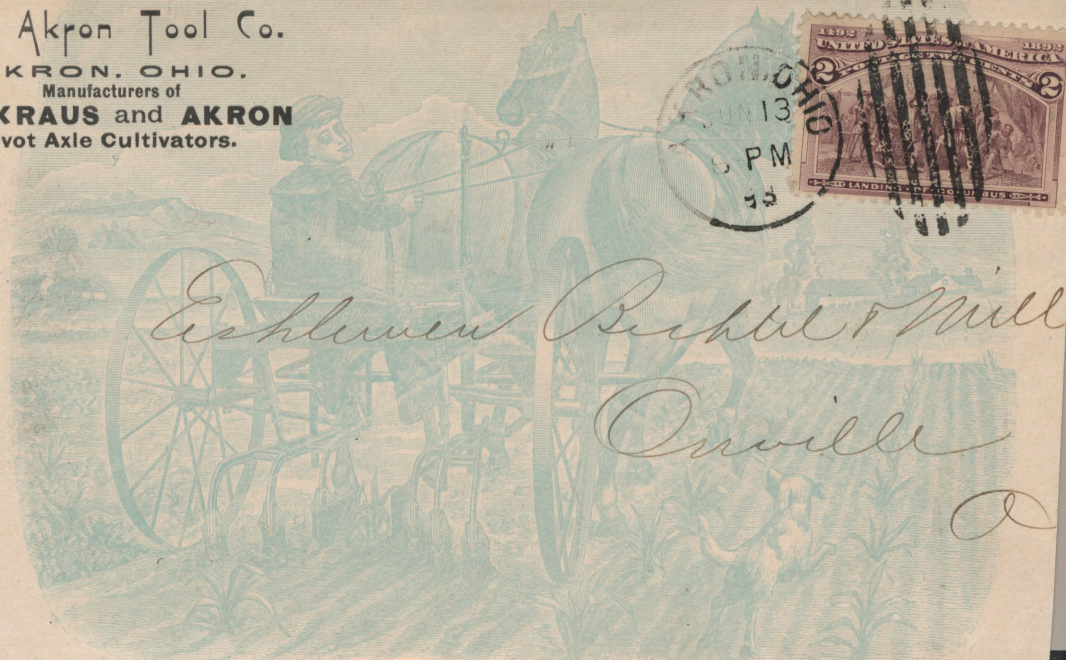 Akron Tool Co.
KRON, OHIO,
Manufacturers of
KRAUS and AKRON
vot Axle Cultivators.
AKRON OHIO
JUN 13
PM
93
1492 1892
UNITED STATES OF AMERICA
2 POSTAGE TWO CENTS 2
LANDING OF COLUMBUS
Bechtel & Mill
Orrville
O